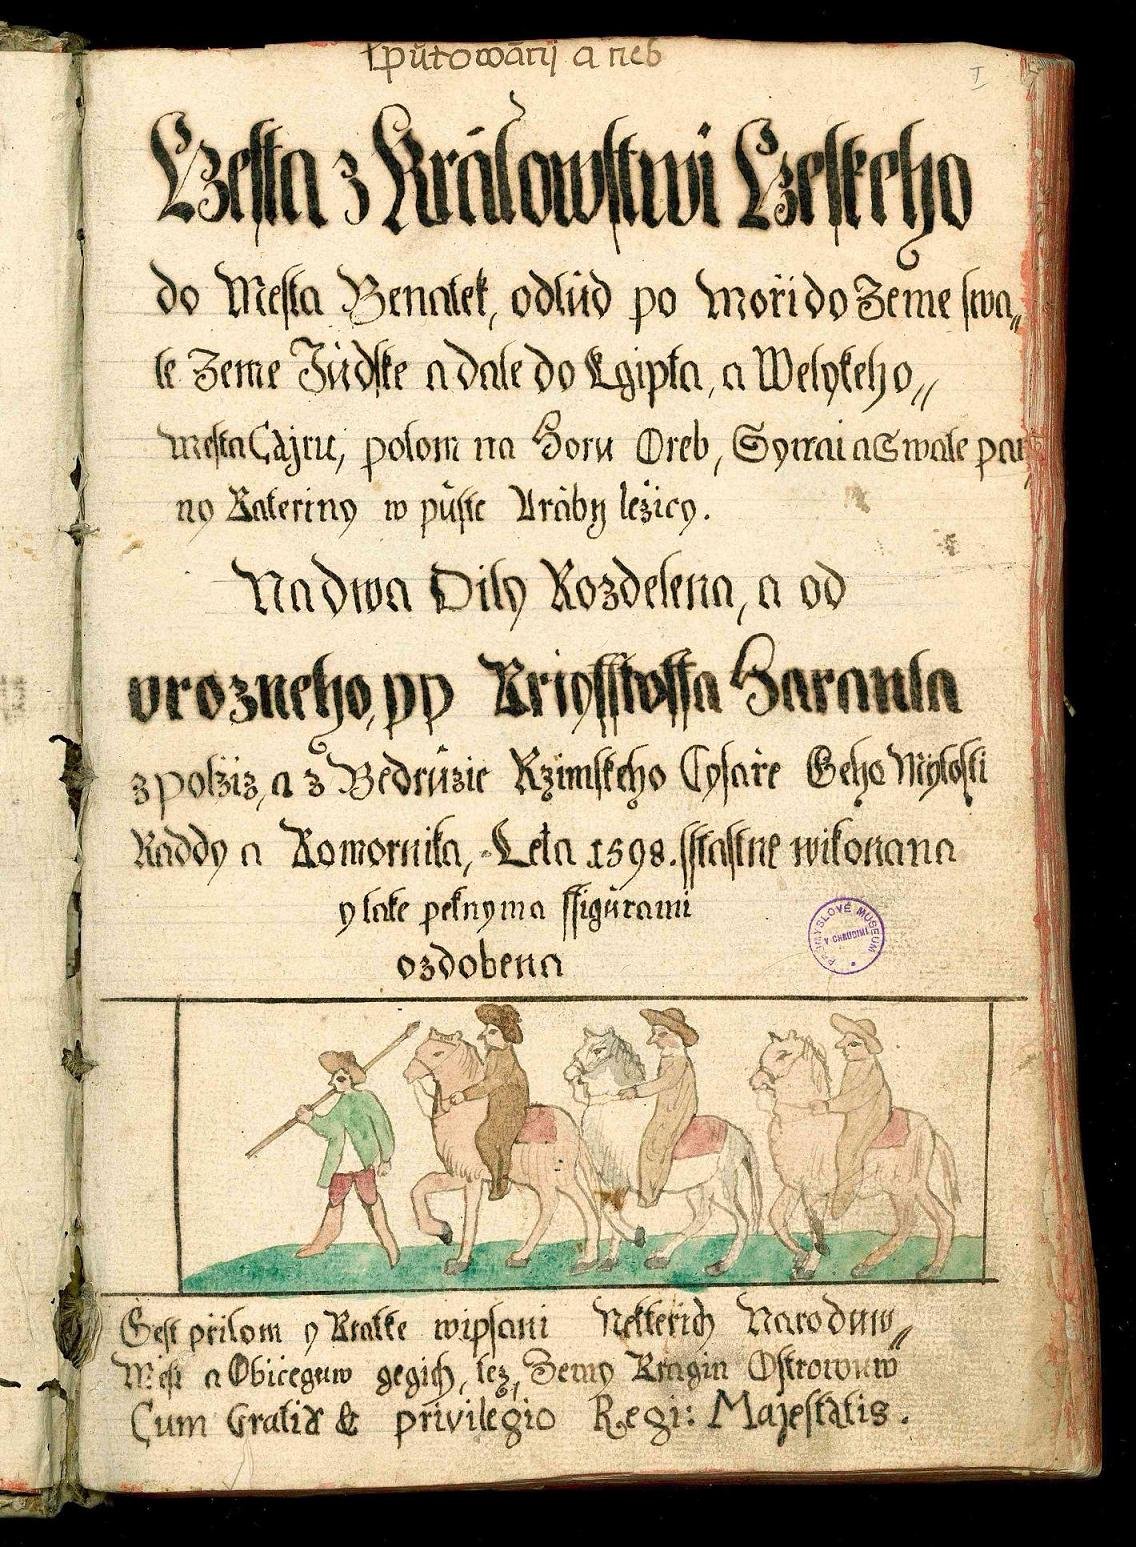 Pŭtowānij a neb
I
Czesta z Králowstwi Czeskeho
do Mesta Benatek, odtŭd po Moři do Zeme swa„
te Zeme Jŭdske a dale do Egipta, a Welykeho„
Mesta Cájru, potom na Horu Oreb, Synai a Swate pan
ny Kateriny w pŭste Araby ležicy.
Na dwa Dily Rozdelena, a od
vrozneho, pp Kriysstoffa Haranta
z Polžiz, a z Bedrŭzic Rzimskeho Cysaře Geho Mylosti
Raddy a Komornika, Leta 1598. sstastne wikonana
y take peknyma ffigŭrami
ozdobena
PRŮMYSLOVÉ MUSEUM
V CHRUDIMI
Gest přitom y Kratke wipsani Nekterich Naroduw„
Mest a Obiceguw gegich, tez, Zemy Kragin Ostrowuw
Cum Gratia & privilegio Regi: Majestatis.